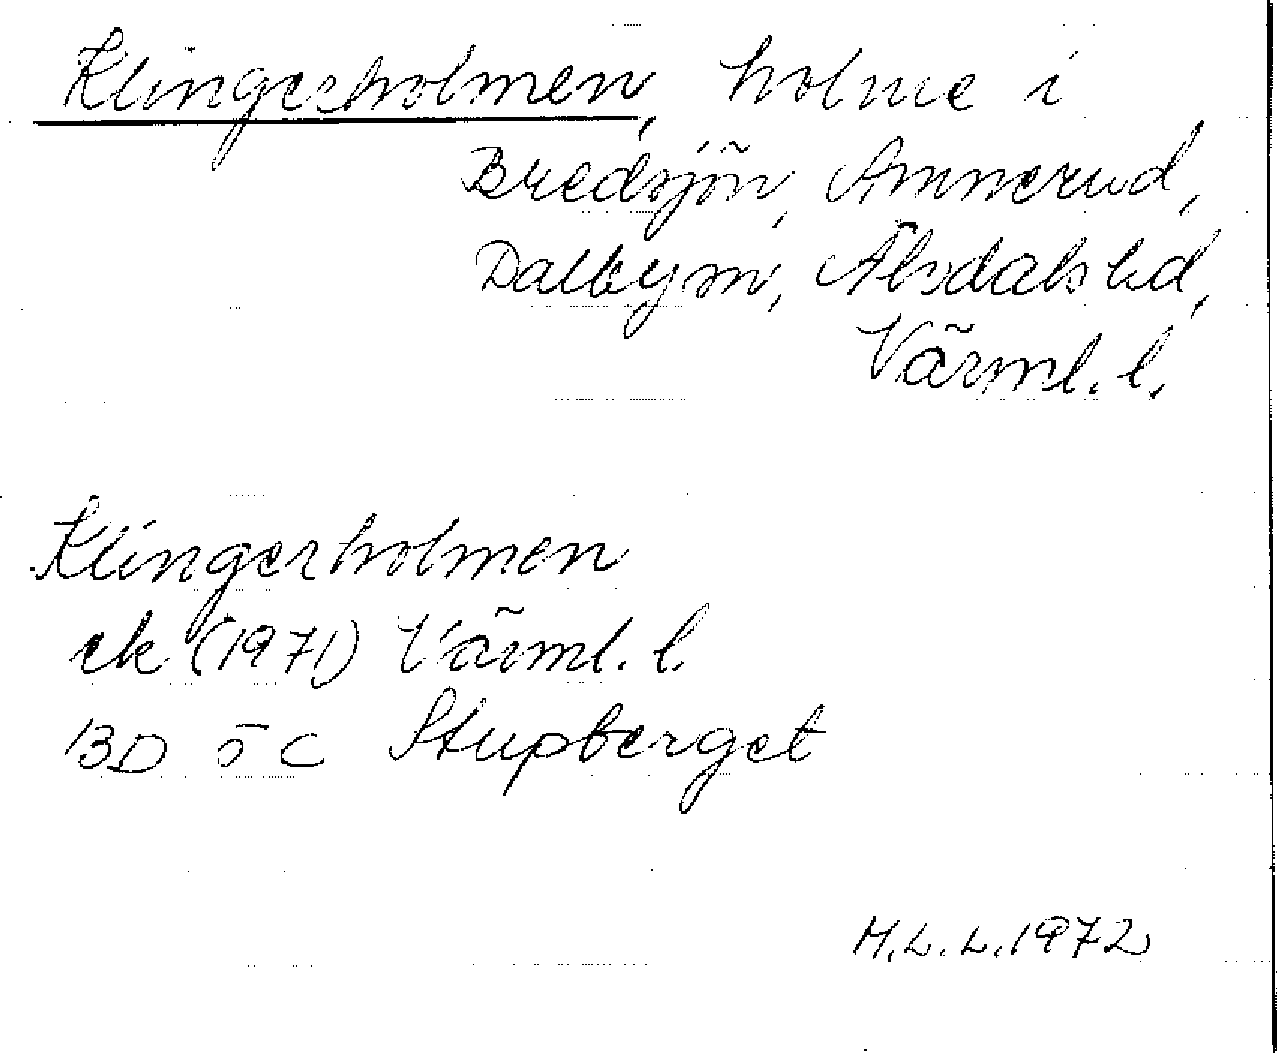 Klingerholmen, holme i
Bredsjön, Ammerud,
Dalby sn, Älvdals hd,
Värml. l.
Klingerholmen
ek (1971) Värml. l.
13D 5 C Stupberget
M.L.L. 1972